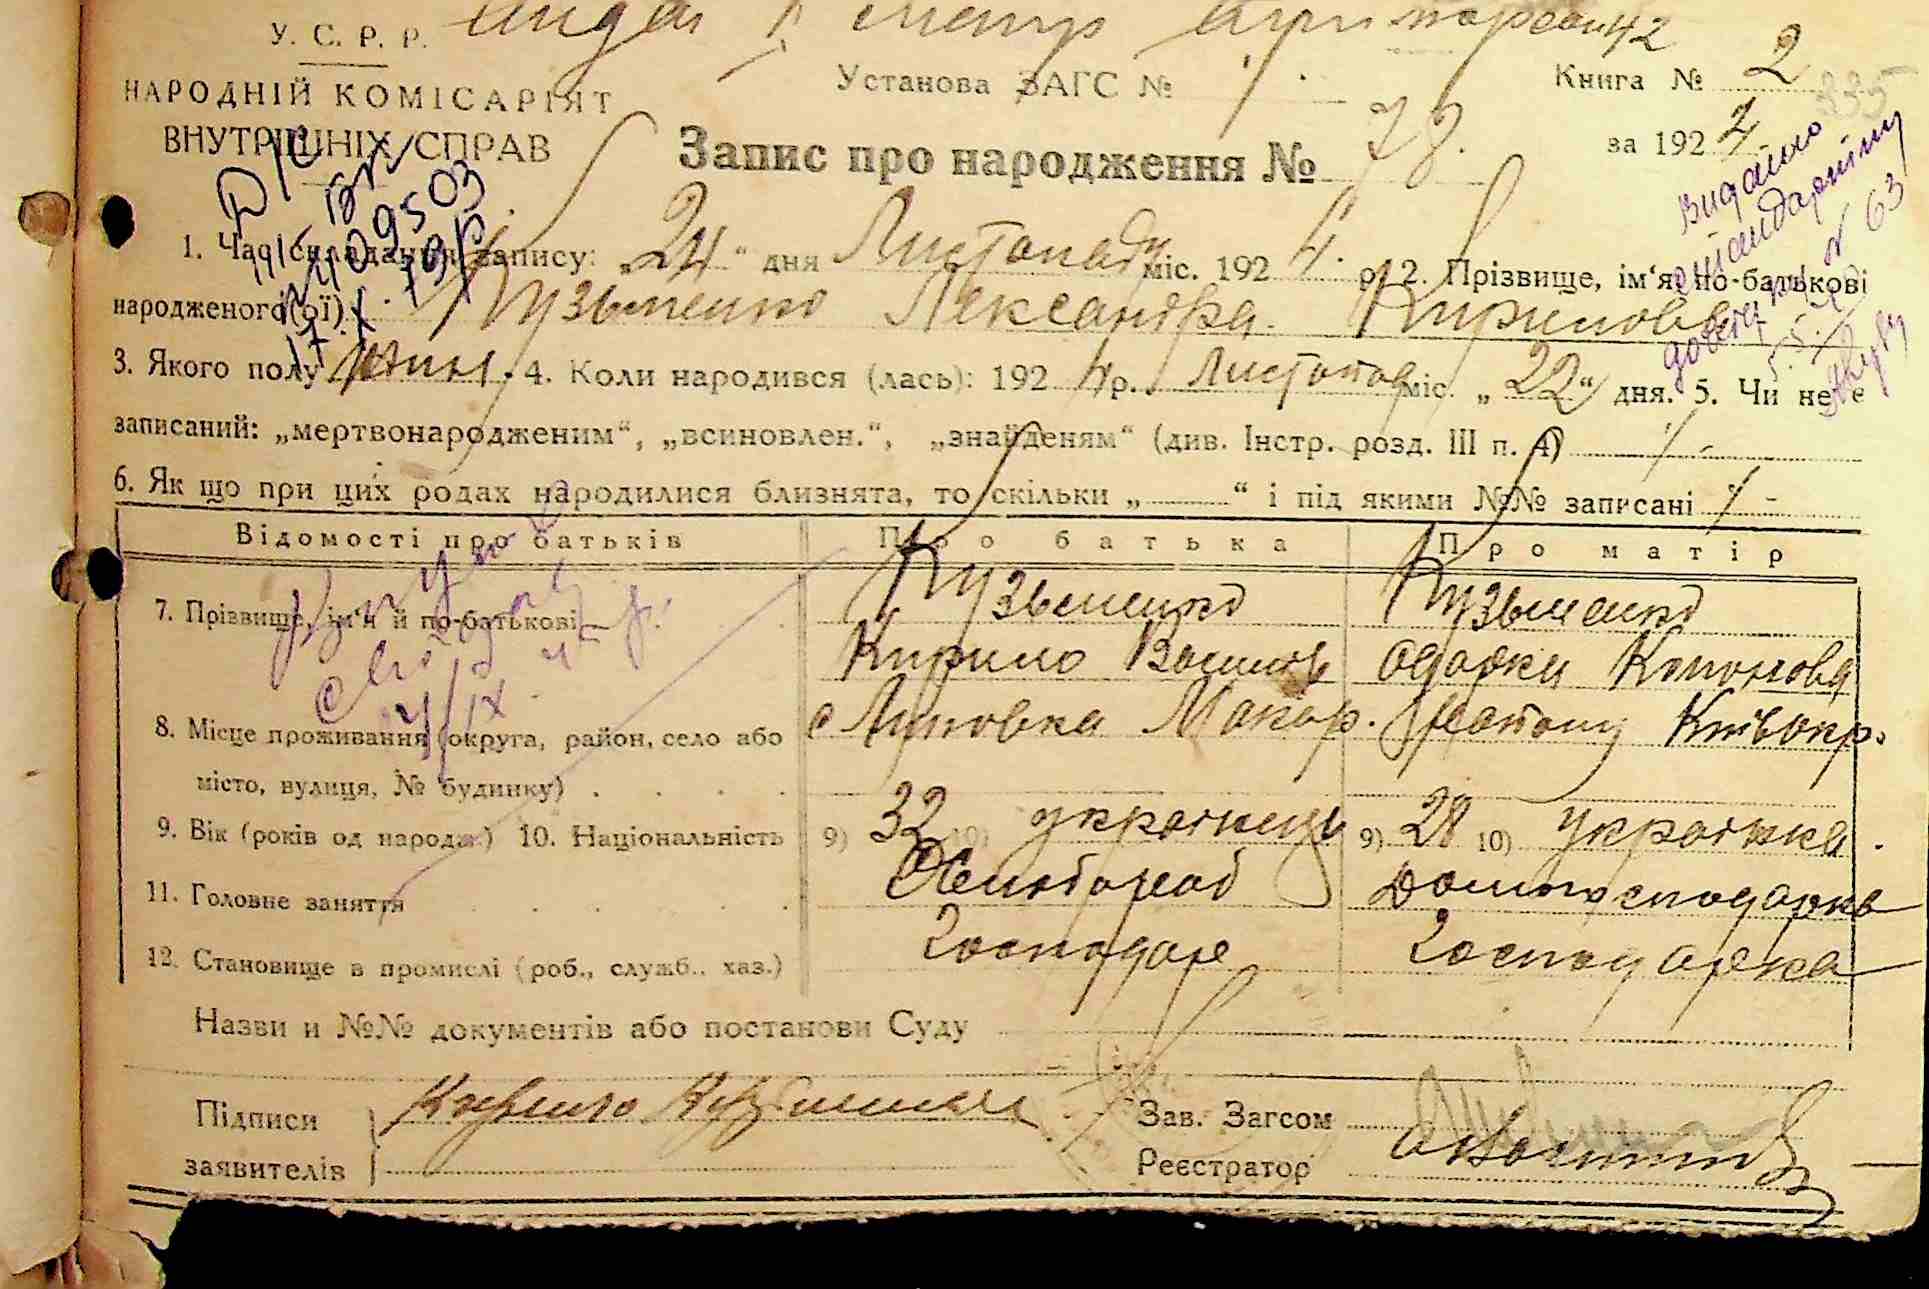 У. С. Р. Р.
Установа ЗАГС №
Книга № 2
НАРОДНІЙ КОМІСАРІЯТ
ВНУТРІШНІХ СПРАВ
Запис про народження № 78.
за 1924
Видано
N 63
409503
1. Час складання запису: „24" дня Листопаду міс. 1924. р. 2. Прізвище, ім'я по-батькові
народженого(ої) Кузьменко Лександра Кирилова
3. Якого полу жін. 4. Коли народився (лась): 1924 р. Листопад міс. „22" дня. 5. Чи не є
записаний: „мертвонародженим", „всиновлен.", „знайденям" (див. Інстр. розд. III п. 4)
6. Як що при цих родах народилися близнята, то скільки „ " і під якими №№ записані
Відомості про батьків
Про батька
Про матір
7. Прізвище, ім'я й по-батькові
Кузьменко
Кузьменко
Кирило Василів
Одарка Кононова
8. Місце проживання (округа, район, село або
с Липовка Макар. Району Київ окр.
місто, вулиця, № будинку)
9. Вік (років од народж.) 10. Національність
9) 32 10) українець
9) 28 10) українка.
11. Головне заняття
Хлібороб
Домогосподарка
12. Становище в промислі (роб., служб., хаз.)
Господар
Господарка
Назви и №№ документів або постанови Суду
Підписи
заявителів
Кирило Кузьменко
Зав. Загсом
Реєстратор